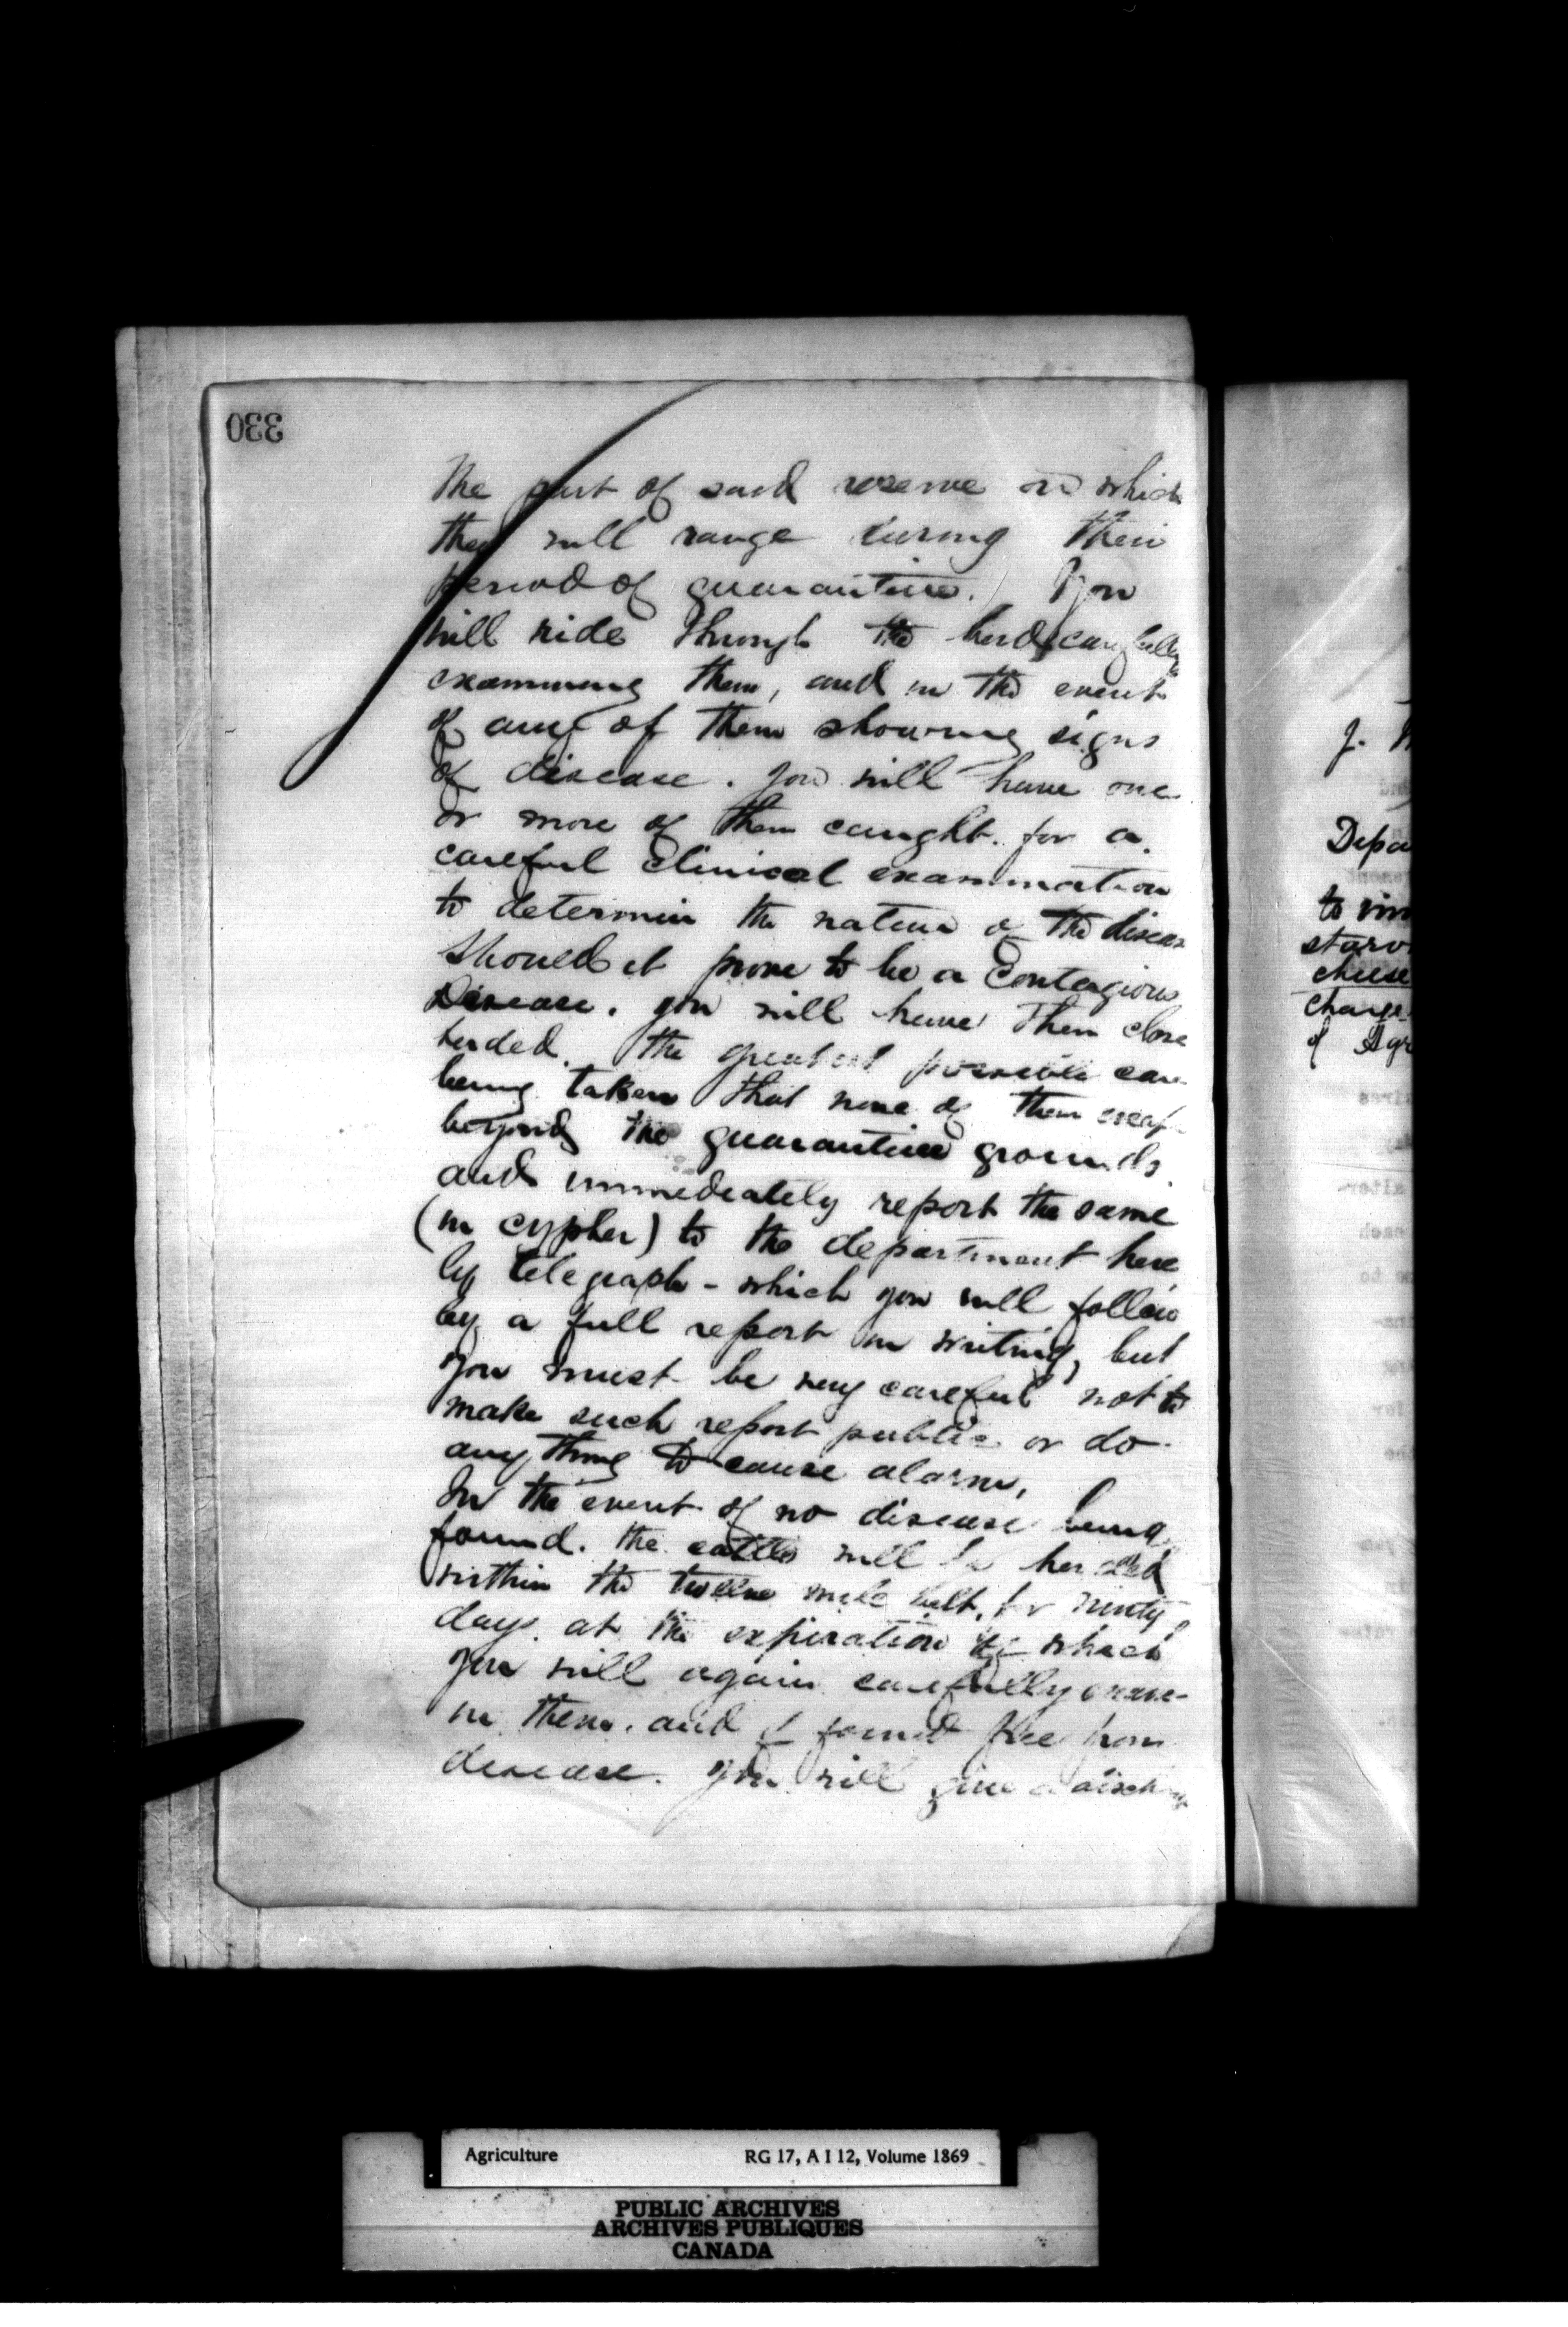 330
The part of said reserve on which
they will range during their
period of quarantine. You
will ride through the herd carefully
examining them, and in the event
of any of them showing signs
of disease. you will have one
or more of them caught. for a
careful clinical examination
to determin the nature of the diseas
should it prove to be a Contagious
Disease. you will have them close
herded. the greatest possible care
being taken that none of them escap
beyond the quarantine grounds.
and immediately report the same
(in cypher) to the department here
by telegraph - which you will follow
by a full report in writing, but
you must be very careful not to
make such report public or do
any thing to cause alarm.
In the event of no disease being
found. the cattle will be herded
within the twelve mile belt. for ninty
days. at the expiration of which
you will again carefully exam-
in them. and if found free from
disease. you will give a disch
J.
Depa
to
starv
cheese
charge
of Agr
Agriculture RG 17, A I 12, Volume 1869
PUBLIC ARCHIVES
ARCHIVES PUBLIQUES
CANADA